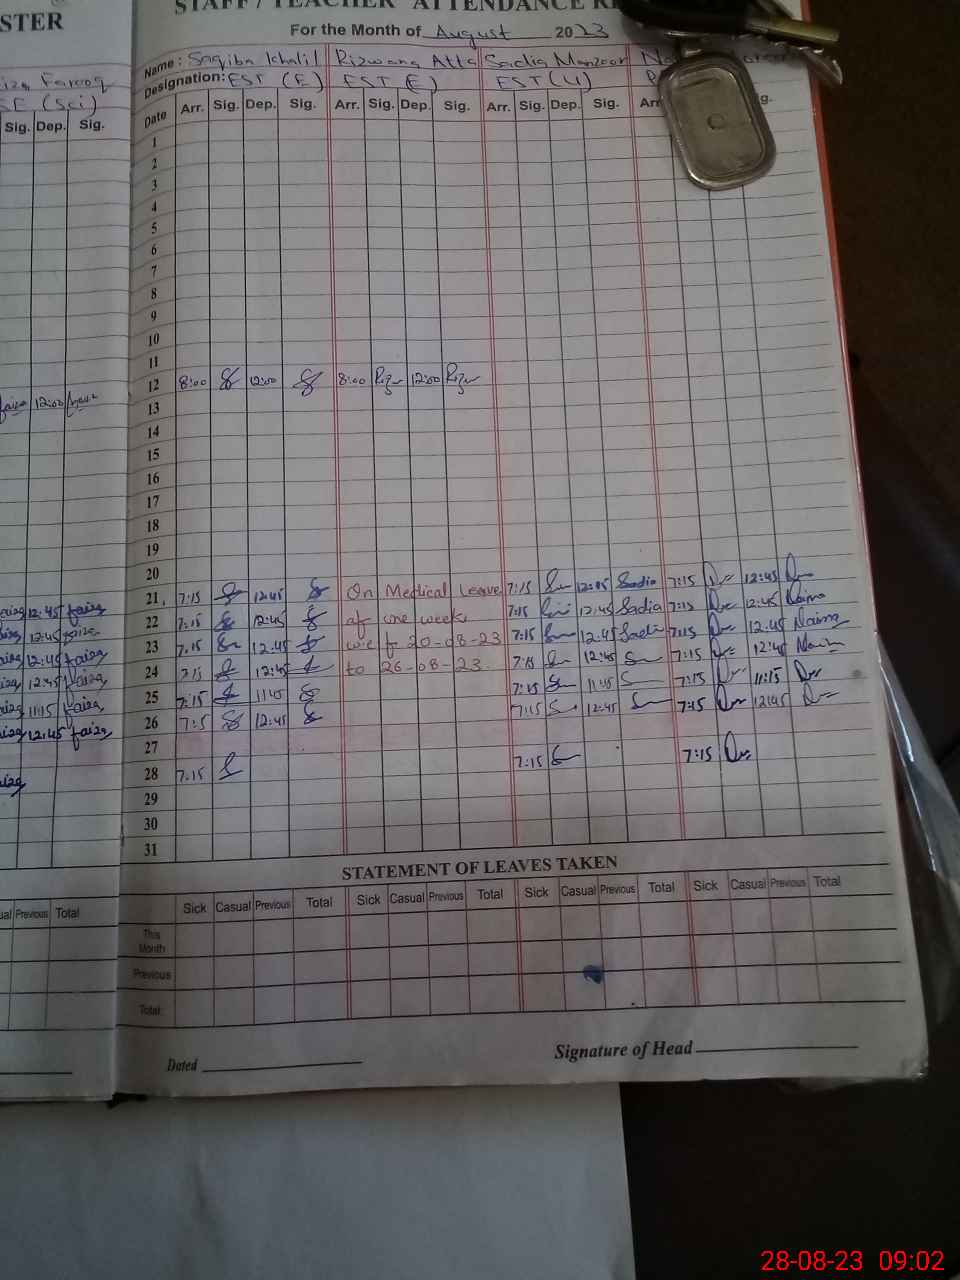 STER
STAFF / TEACHER ATTENDANCE RE
For the Month of August 2023
Name: Saqiba Khalil Rizwana Atta Sadia Manzoor
Farooq
Designation: EST (E) EST (E) EST (U)
SE (Sci)
Date Arr. Sig. Dep. Sig. Arr. Sig. Dep. Sig. Arr. Sig. Dep. Sig. Arr
Sig. Dep. Sig.
1
2
3
4
5
6
7
8
9
10
11
12 8:00 12:00 8:00 Riz 12:00 Riz
12:00
13
14
15
16
17
18
19
20
21 7:15 12:45 On Medical Leave 7:15 12:45 Sadia 7:15 12:45
12:45 faiza
22 7:15 12:45 of one week 7:15 12:45 Sadia 7:15 12:45 Naima
12:45
23 7:15 12:45 w.e.f 20-08-23 7:15 12:45 Sadi 7:15 12:45 Naima
12:45 faiza
24 7:15 12:45 to 26-08-23 7:15 12:45 7:15 12:45 Naim
12:45 faiza
25 7:15 11:45 7:15 11:45 7:15 11:15
11:15 faiza
26 7:15 12:45 7:15 12:45 7:15 12:45
12:45 faiza
27
28 7:15 7:15 7:15
29
30
31
STATEMENT OF LEAVES TAKEN
Sick Casual Previous Total Sick Casual Previous Total Sick Casual Previous Total Sick Casual Previous Total
Previous Total
This Month
Previous
Total
Dated
Signature of Head
28-08-23 09:02